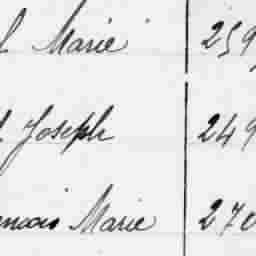 Marie 259
Joseph 249
Marie 270